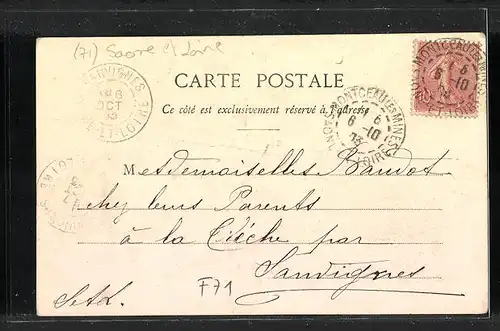 (71) Saone et Loire
CARTE POSTALE
Ce côté est exclusivement réservé à l'adresse
MONTCEAU-LES-MINES
6
6 -10
03
SAONE-ET-LOIRE
SANVIGNES
6
OCT
03
SAONE-ET-LOIRE
Mesdemoiselles Baudot
chez leurs Parents
à la Crèche par
Sanvignes
S.et.L.
F71